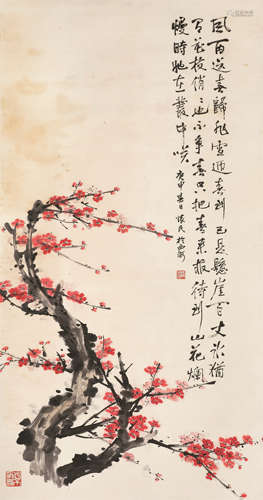 風雨送春歸飛雪迎春到已是懸崖百丈冰猶
有花枝俏俏也不爭春只把春來報待到山花爛
慢時她在叢中咲
庚申